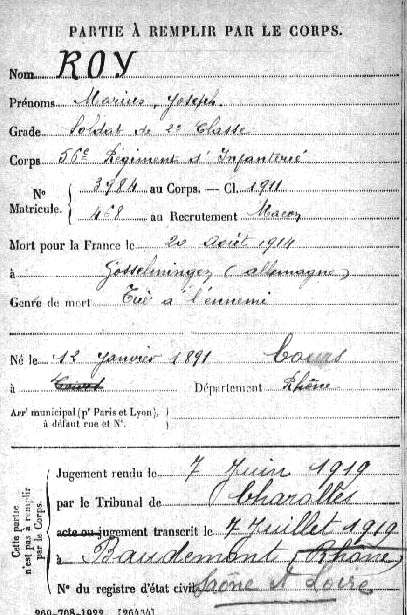 PARTIE À REMPLIR PAR LE CORPS.
Nom ROY
Prénoms Marius, Joseph.
Grade Soldat de 2e Classe
Corps 56e Régiment d'Infanterie
N° Matricule. { 3784 au Corps. — Cl. 1911
468 au Recrutement Macon
Mort pour la France le 20 Août 1914
à Gosselmingen (allemagne)
Genre de mort Tué à l'ennemi
Né le 12 Janvier 1891 Cours
à Département Rhône
Arrt municipal (pr Paris et Lyon),
à défaut rue et N°.
Cette partie n'est pas à remplir par le Corps.
Jugement rendu le 7 Juin 1919
par le Tribunal de Charolles
acte ou jugement transcrit le 7 Juillet 1919
à Baudemont (Rhône)
N° du registre d'état civil Saône et Loire